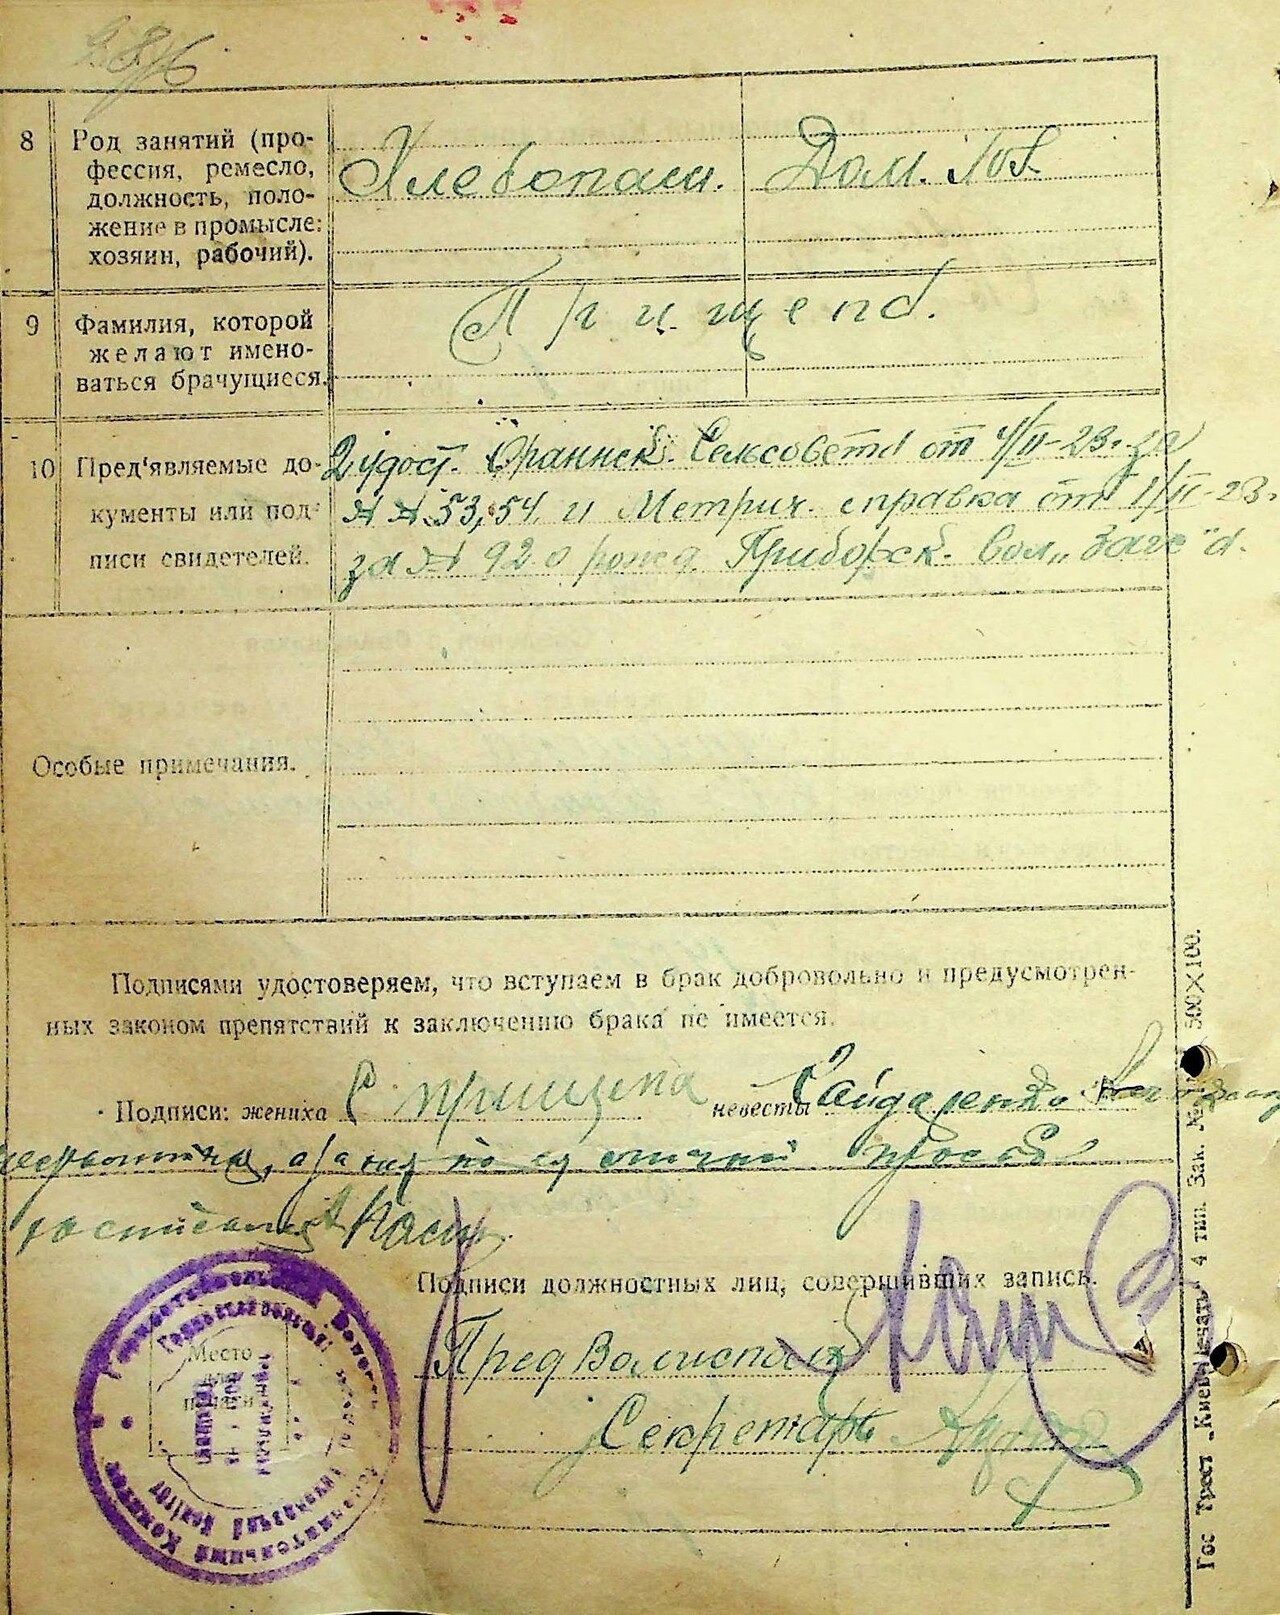 8
Род занятий (про-
фессия, ремесло,
должность, поло-
жение в промысле:
хозяин, рабочий).
Хлебопаш.
Дом. хоз.
9
Фамилия, которой
желают имено-
ваться брачущиеся.
Прищепа.
10
Пред'являемые до-
кументы или под-
писи свидетелей.
2 удост. Ораннск. Сельсовета от 4/II-23. за
№ № 53, 54. и Метрич. справка от 1/II-23.
за № 92 о рожд. Приборск. Вол. „Загс"а.
Особые примечания.
Подписями удостоверяем, что вступаем в брак добровольно и предусмотрен-
ных законом препятствий к заключению брака не имеется.
Подписи: жениха С Прищепа невесты Гайдаренко
а за нея по ея личной просьбе
Подписи должностных лиц, совершивших запись.
Пред Волисполк
Секретарь
Место
для
печати
Гос Трест „Киев-Печать" 4 тип. Зак. № 500×100.